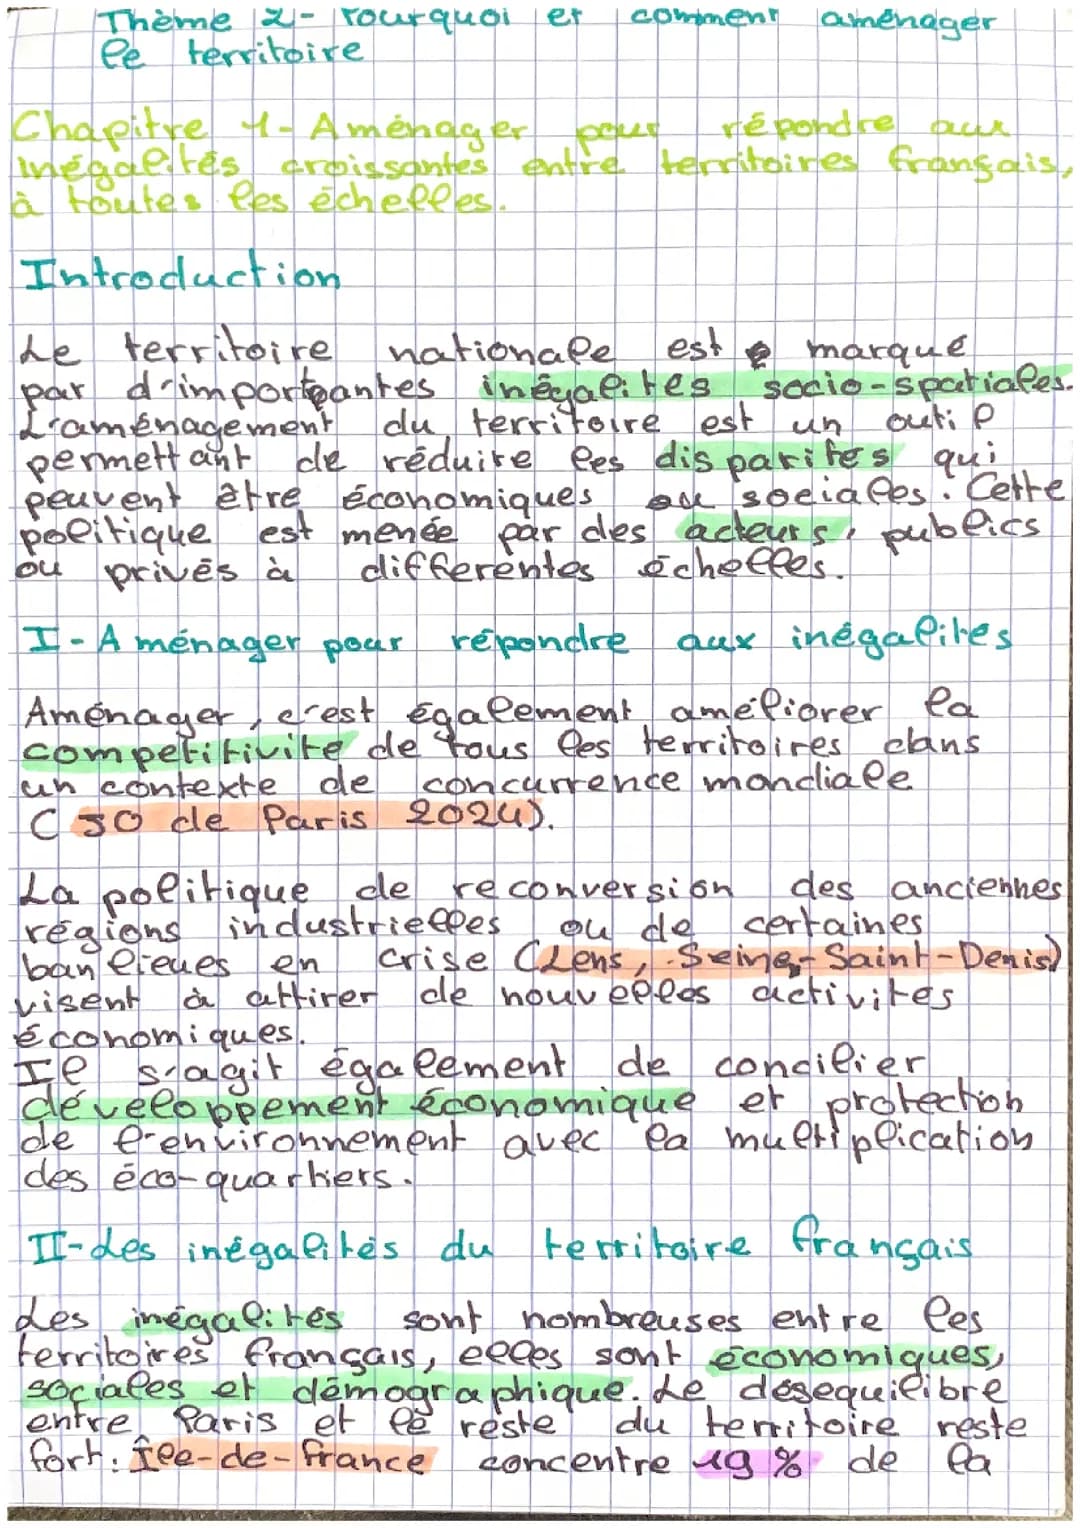 Thème 2- Pourquoi et comment aménager
le territoire
Chapitre 1- Aménager pour répondre aux
inégalités croissantes entre territoires français,
à toutes les échelles.
Introduction
Le territoire nationale est marqué
par d'importantes inégalités socio-spatiales.
L'aménagement du territoire est un outil
permettant de réduire les disparités qui
peuvent être économiques ou sociales. Cette
politique est menée par des acteurs, publics
ou privés à differentes échelles.
I-Aménager pour répondre aux inégalités
Aménager, c'est également améliorer la
compétitivité de tous les territoires dans
un contexte de concurrence mondiale
(JO de Paris 2024).
La politique de reconversion des anciennes
régions industrielles ou de certaines
banlieues en crise (Lens, Seine-Saint-Denis)
visent à attirer de nouvelles activités
économiques.
Il s'agit également de concilier
développement économique et protection
de l'environnement avec la multiplication
des éco-quartiers.
II-Les inégalités du territoire français
Les inégalités sont nombreuses entre les
territoires français, elles sont économiques,
sociales et démographique. Le désequilibre
entre Paris et le reste du territoire reste
fort: Île-de-france concentre 19% de la